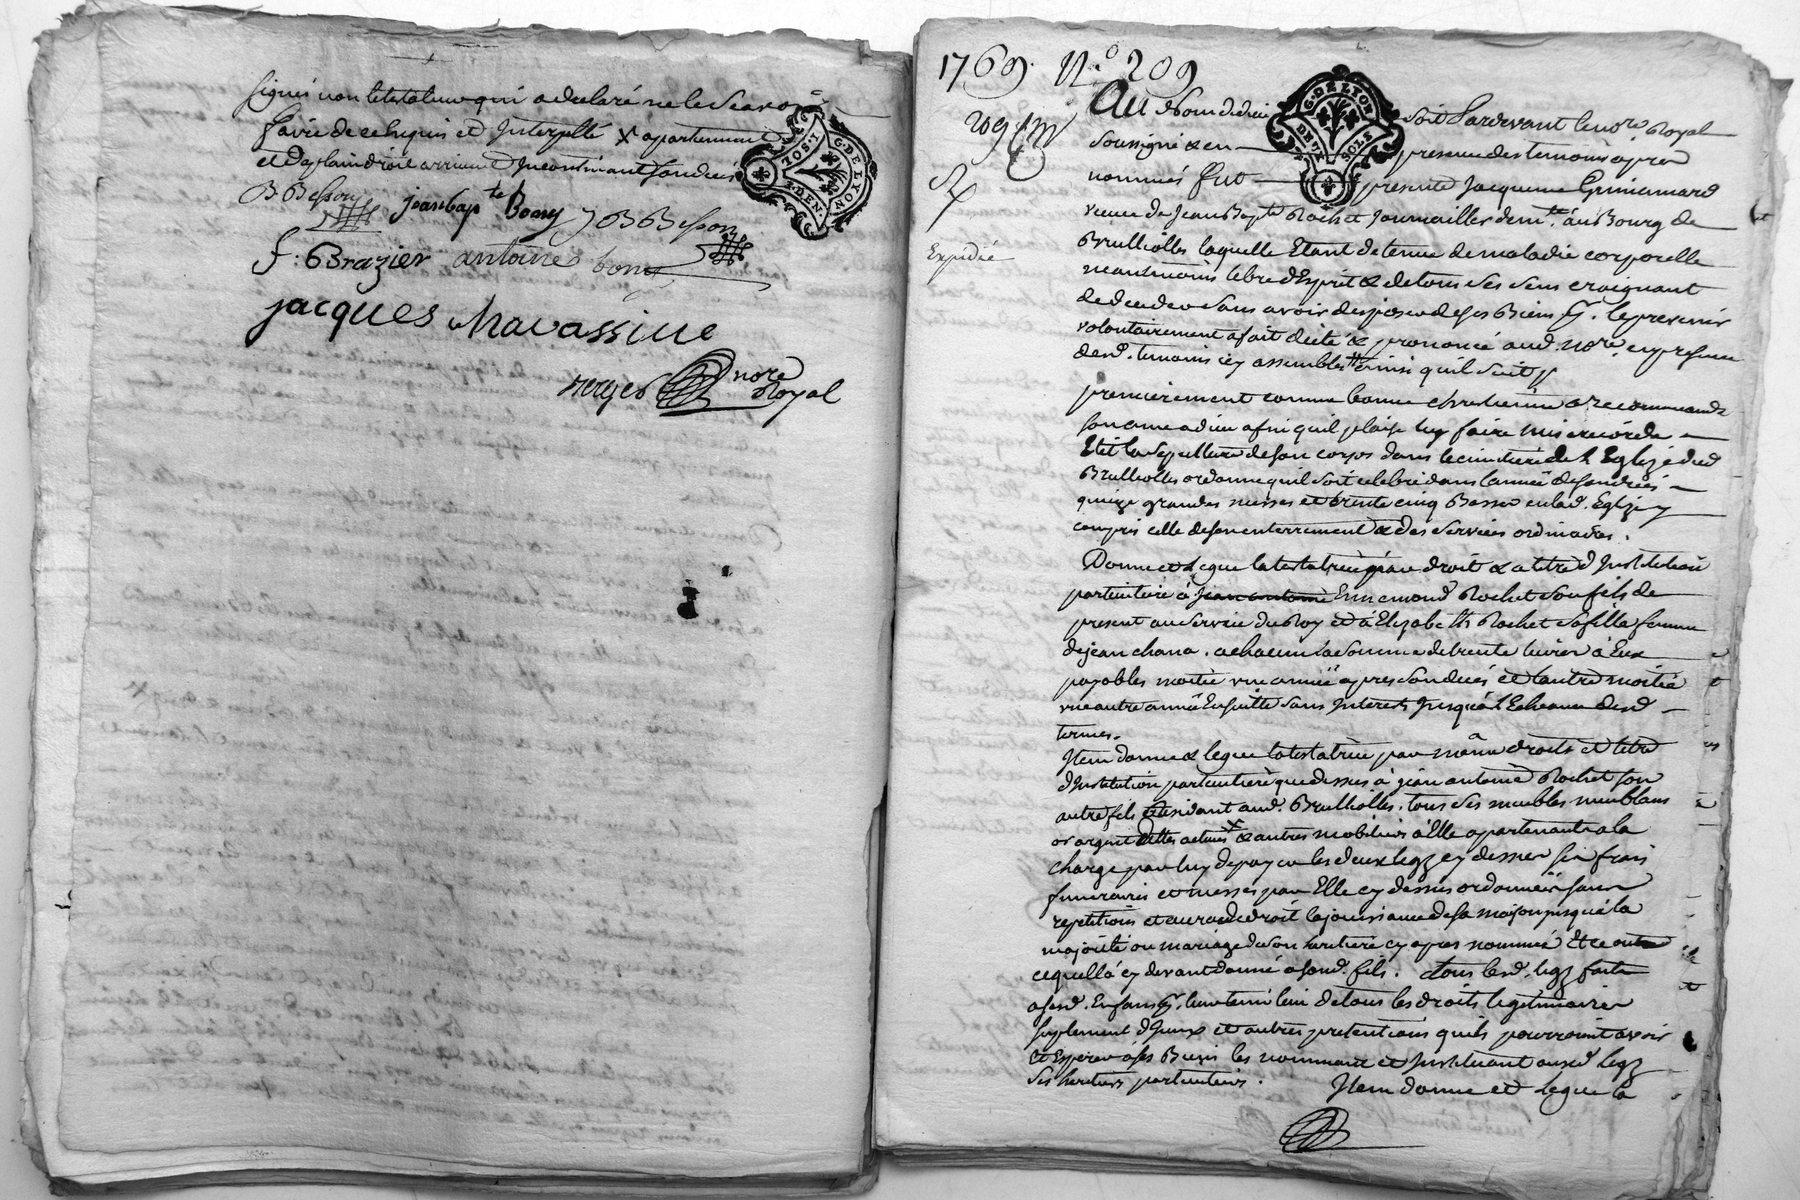 signés non le testateur qui a declaré ne le Scavoir
faire de ce Requis et Interpellé x apartenant
et de plain droit arrivant Incontinant son deces
BBesson jean bap te Bony JBBesson
f: Brazier antoine bony
jacques Chavassiue
verger nore
Royal
G. DE LYON
1769. N.o 209
Au Nom de dieu soit Pardevant le no.re Royal
soussigné & en presence des temoins apres
nommés fut presente Jacqueme Grimamard
veuve de Jean Bap.te Rochet Journaillier dem.te au Bourg de
Expedié
Brullioles laquelle Etant detenue de maladie corporelle
neantmoins libre d'Esprit & de tous ses sens craignant
de deceder sans avoir disposer de ses Biens p.r le prevenir
volontairement a fait dicté & prononcé aud. no.re en presence
desd. temoins icy assemblés ainsi qu'il suit
premierement comme bonne chretienne a recommandé
son ame a dieu afin qu'il plaise luy faire misericorde
Elit la sepulture de son corps dans le cimetiere de l'Eglize dud
Brullioles ordonne qu'il soit celebré dans l'année de son deces
quinze grandes messes et trente cinq Basses en lad. Eglize y
compris celle de son enterrement & des services ordinaires.
Donne et Legue la testatrice par droit & a titre d'Institution
particuliere à jean antoine Ennemond Rochet son fils de
present au service du Roy et à Elizabeth Rochet sa fille femme
de jean chana. a chacun la somme de trente livres à Eux
payables moitié une année apres son deces et l'autre moitié
une autre année Ensuitte sans Interets Jusqu'à l'Echeance desd
termes.
Item donne & legue la testatrice par même droits et titre
d'Institution particuliere que dessus à jean antoine Rochet son
autre fils residant aud. Brullioles. tous ses meubles meublans
or argent dettes actives x & autres mobiliers à Elle apartenants a la
charge par luy de payer les deux legz cy dessus ses frais
funeraires et messes par Elle cy dessus ordonnées sans
repetitions et aura de droit la jouissance de sa maison jusqu'à la
majorité ou mariage de son heritiere cy apres nommée Et ce outre
ce quell'a cy devant donné a sond. fils. tous lesd. legz faits
a sesd. Enfans p.r leur tenir lieu de tous les droits legitimaires
suplement d'Iceux et autres pretentions qu'ils pourroient avoir
et Esperer à ses Biens les nommant et Instituant auxd legz
ses heritiers particuliers. Item donne et Legue la